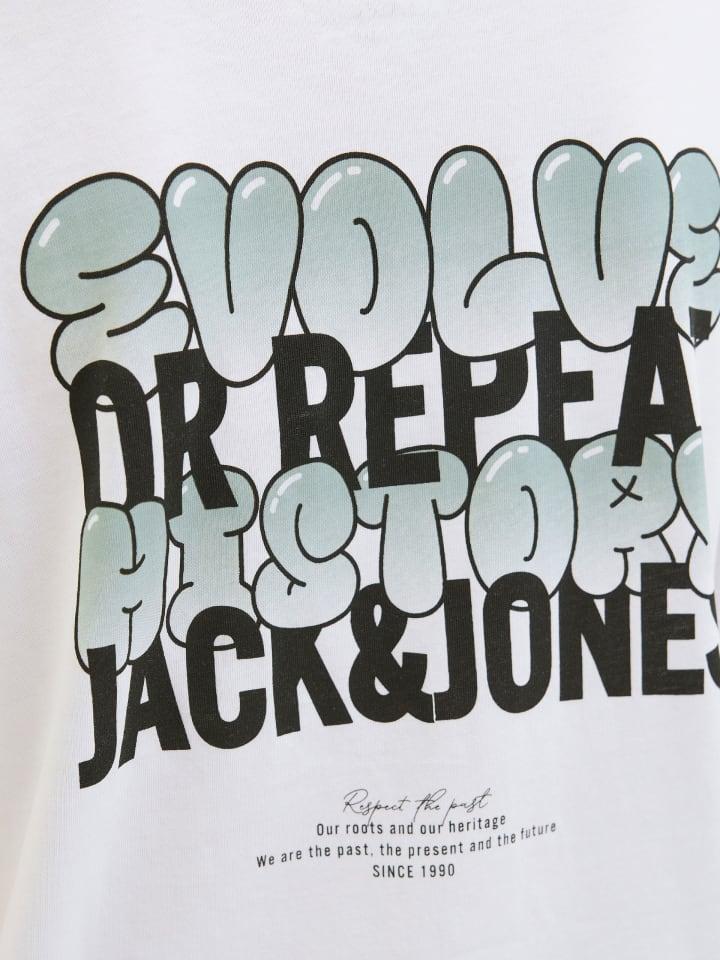 EVOLVE
OR REPEAT
HISTORY
JACK&JONES
Respect the past
Our roots and our heritage
We are the past, the present and the future
SINCE 1990